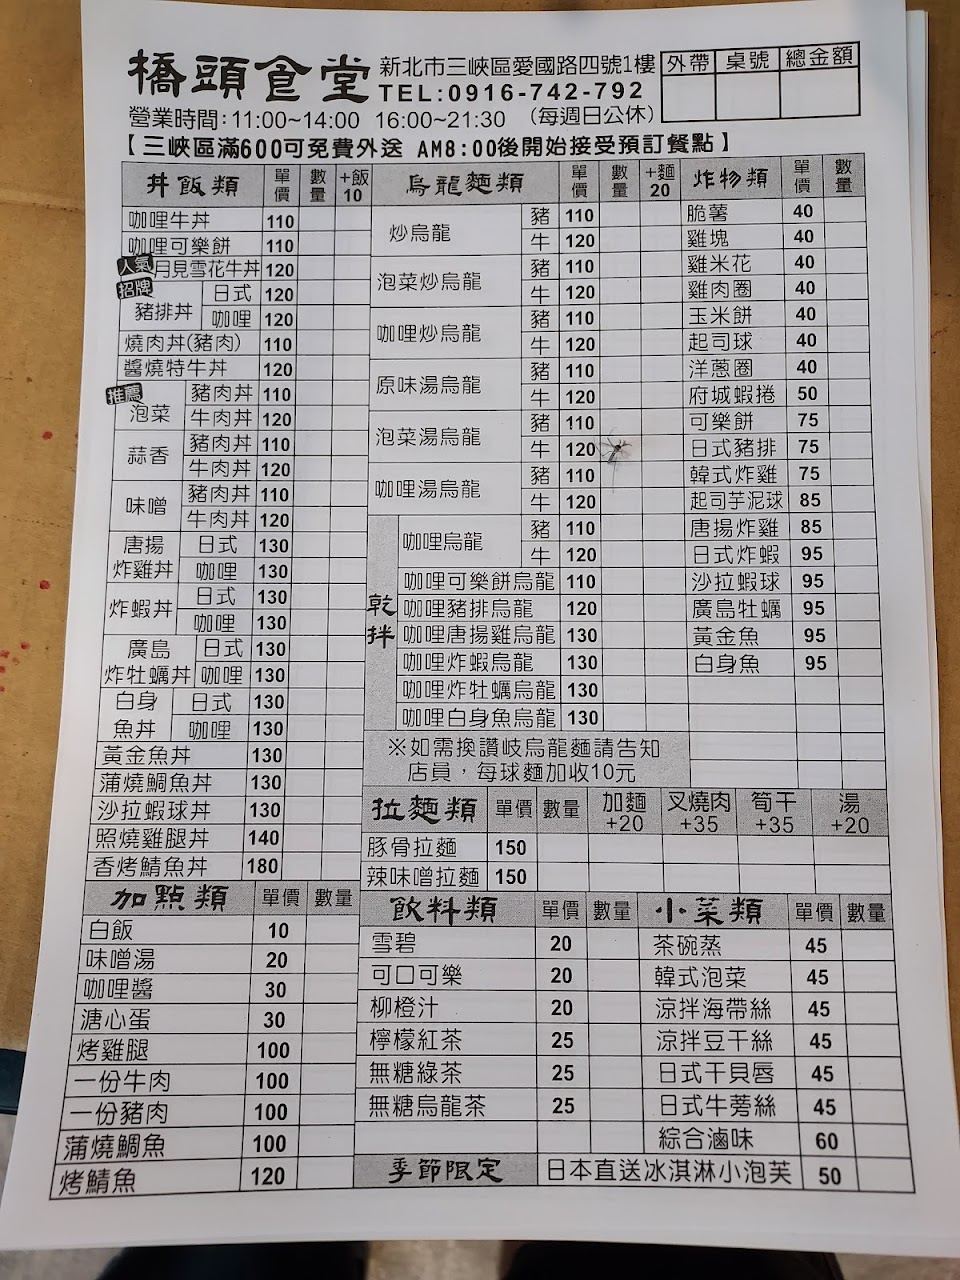 橋頭食堂
新北市三峽區愛國路四號1樓
TEL:0916-742-792
營業時間:11:00~14:00 16:00~21:30 (每週日公休)
外帶 桌號 總金額
【三峽區滿600可免費外送 AM8:00後開始接受預訂餐點】
丼飯類 單價 數量 +飯10
咖哩牛丼 110
咖哩可樂餅 110
人氣 月見雪花牛丼 120
招牌 豬排丼 日式 120
咖哩 120
燒肉丼(豬肉) 110
醬燒特牛丼 120
推薦 泡菜 豬肉丼 110
牛肉丼 120
蒜香 豬肉丼 110
牛肉丼 120
味噌 豬肉丼 110
牛肉丼 120
唐揚炸雞丼 日式 130
咖哩 130
炸蝦丼 日式 130
咖哩 130
廣島炸牡蠣丼 日式 130
咖哩 130
白身魚丼 日式 130
咖哩 130
黃金魚丼 130
蒲燒鯛魚丼 130
沙拉蝦球丼 130
照燒雞腿丼 140
香烤鯖魚丼 180
烏龍麵類 單價 數量 +麵20
炒烏龍 豬 110
牛 120
泡菜炒烏龍 豬 110
牛 120
咖哩炒烏龍 豬 110
牛 120
原味湯烏龍 豬 110
牛 120
泡菜湯烏龍 豬 110
牛 120
咖哩湯烏龍 豬 110
牛 120
乾拌
咖哩烏龍 豬 110
牛 120
咖哩可樂餅烏龍 110
咖哩豬排烏龍 120
咖哩唐揚雞烏龍 130
咖哩炸蝦烏龍 130
咖哩炸牡蠣烏龍 130
咖哩白身魚烏龍 130
※如需換讚岐烏龍麵請告知
店員，每球麵加收10元
炸物類 單價 數量
脆薯 40
雞塊 40
雞米花 40
雞肉圈 40
玉米餅 40
起司球 40
洋蔥圈 40
府城蝦捲 50
可樂餅 75
日式豬排 75
韓式炸雞 75
起司芋泥球 85
唐揚炸雞 85
日式炸蝦 95
沙拉蝦球 95
廣島牡蠣 95
黃金魚 95
白身魚 95
拉麵類 單價 數量 加麵+20 叉燒肉+35 筍干+35 湯+20
豚骨拉麵 150
辣味噌拉麵 150
加點類 單價 數量
白飯 10
味噌湯 20
咖哩醬 30
溏心蛋 30
烤雞腿 100
一份牛肉 100
一份豬肉 100
蒲燒鯛魚 100
烤鯖魚 120
飲料類 單價 數量
雪碧 20
可口可樂 20
柳橙汁 20
檸檬紅茶 25
無糖綠茶 25
無糖烏龍茶 25
小菜類 單價 數量
茶碗蒸 45
韓式泡菜 45
涼拌海帶絲 45
涼拌豆干絲 45
日式干貝唇 45
日式牛蒡絲 45
綜合滷味 60
季節限定 日本直送冰淇淋小泡芙 50